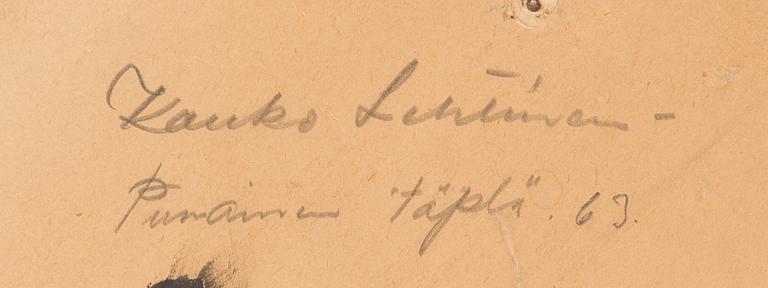 Kauko Lehtinen -
Punainen täplä. 63.